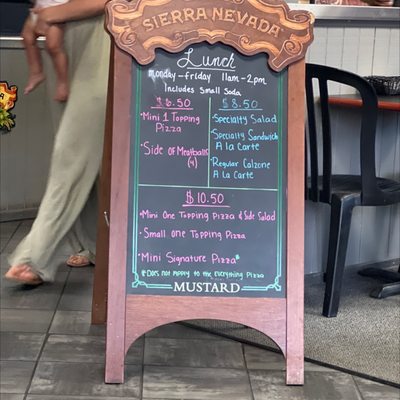 SIERRA NEVADA
Lunch
monday-friday 11am-2pm
Includes Small Soda
$6.50
•Mini 1 Topping
Pizza
•Side of Meatballs
(4)
$8.50
•Specialty Salad
•Specialty Sandwich
A la Carte
•Regular Calzone
A la Carte
$10.50
•Mini One Topping Pizza & Side Salad
•Small One Topping Pizza
•Mini Signature Pizza*
*Does not apply to the everything pizza
MUSTARD